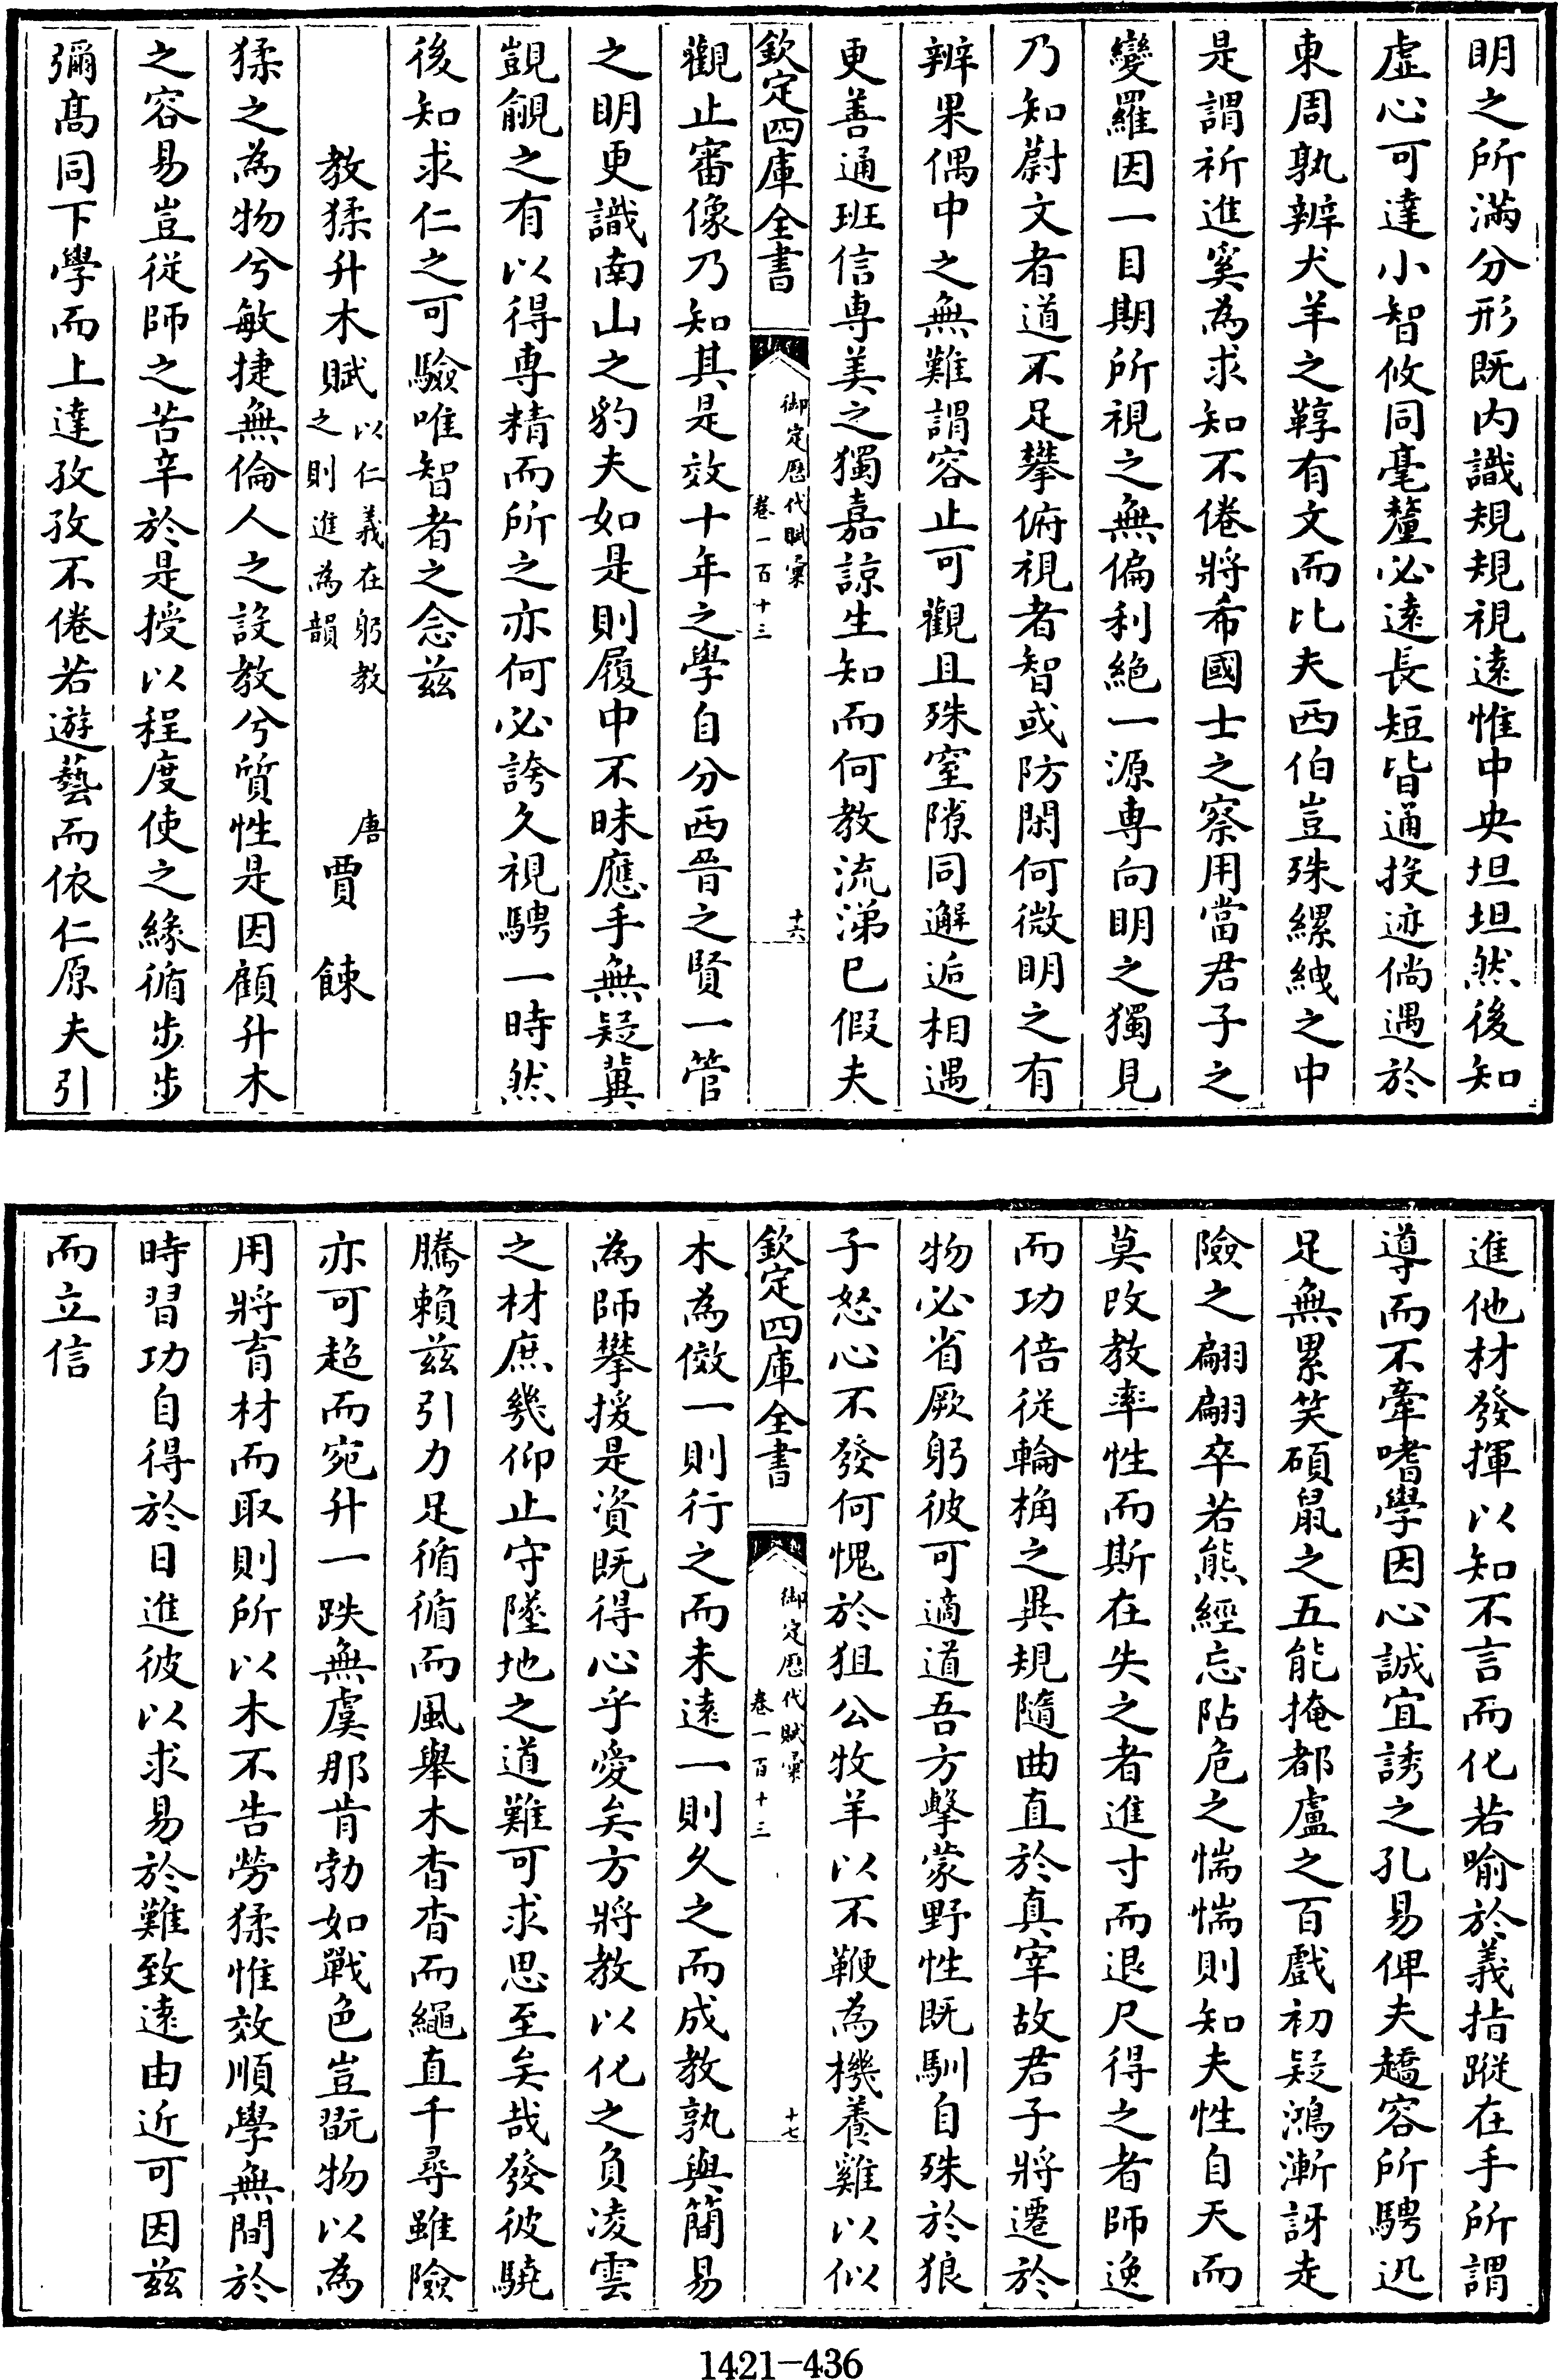 明之所滿分形既内識規規視遠惟中央坦坦然後知
虛心可達小智攸同毫釐必遠長短皆通投迹倘遇於
東周孰辨犬羊之鞟有文而比夫西伯豈殊縲絏之中
是謂祈進奚為求知不倦將希國士之察用當君子之
變羅因一目期所視之無偏利絶一源専向明之獨見
乃知蔚文者道不足攀俯視者智或防閑何微明之有
辨果偶中之無難謂容止可觀且殊窒隙同邂逅相遇
更善通班信専美之獨嘉諒生知而何教流涕已假夫
欽定四庫全書
御定歷代賦彙
卷一百十三
十六
觀止審像乃知其是效十年之學自分西晉之賢一管
之明更識南山之豹夫如是則履中不昧應手無疑冀
覬覦之有以得専精而所之亦何必誇久視騁一時然
後知求仁之可驗唯智者之念兹
教猱升木賦
以仁義在躬教
之則進為韻
唐
賈餗
猱之為物兮敏捷無倫人之設教兮質性是因顧升木
之容易豈從師之苦辛於是授以程度使之緣循步步
彌髙同下學而上達孜孜不倦若遊藝而依仁原夫引
進他材發揮以知不言而化若喻於義指蹤在手所謂
導而不牽嗜學因心誠宜誘之孔易俾夫趫容所騁迅
足無累笑碩鼠之五能掩都盧之百戲初疑鴻漸訝走
險之翩翩卒若熊經忘阽危之惴惴則知夫性自天而
莫改教率性而斯在失之者進寸而退尺得之者師逸
而功倍從輪桷之異規隨曲直於真宰故君子將遷於
物必省厥躬彼可適道吾方擊蒙野性既馴自殊於狼
子怒心不發何愧於狙公牧羊以不鞭為機養雞以似
欽定四庫全書
御定歷代賦彙
卷一百十三
十七
木為儆一則行之而未遠一則久之而成教孰與簡易
為師攀援是資既得心乎愛矣方將教以化之負凌雲
之材庶幾仰止守墜地之道難可求思至矣哉發彼驍
騰賴兹引力足循循而風舉木杳杳而繩直千尋雖險
亦可超而宛升一跌無虞那肯勃如戰色豈翫物以為
用將育材而取則所以木不告勞猱惟效順學無間於
時習功自得於日進彼以求易於難致遠由近可因兹
而立信
1421-436